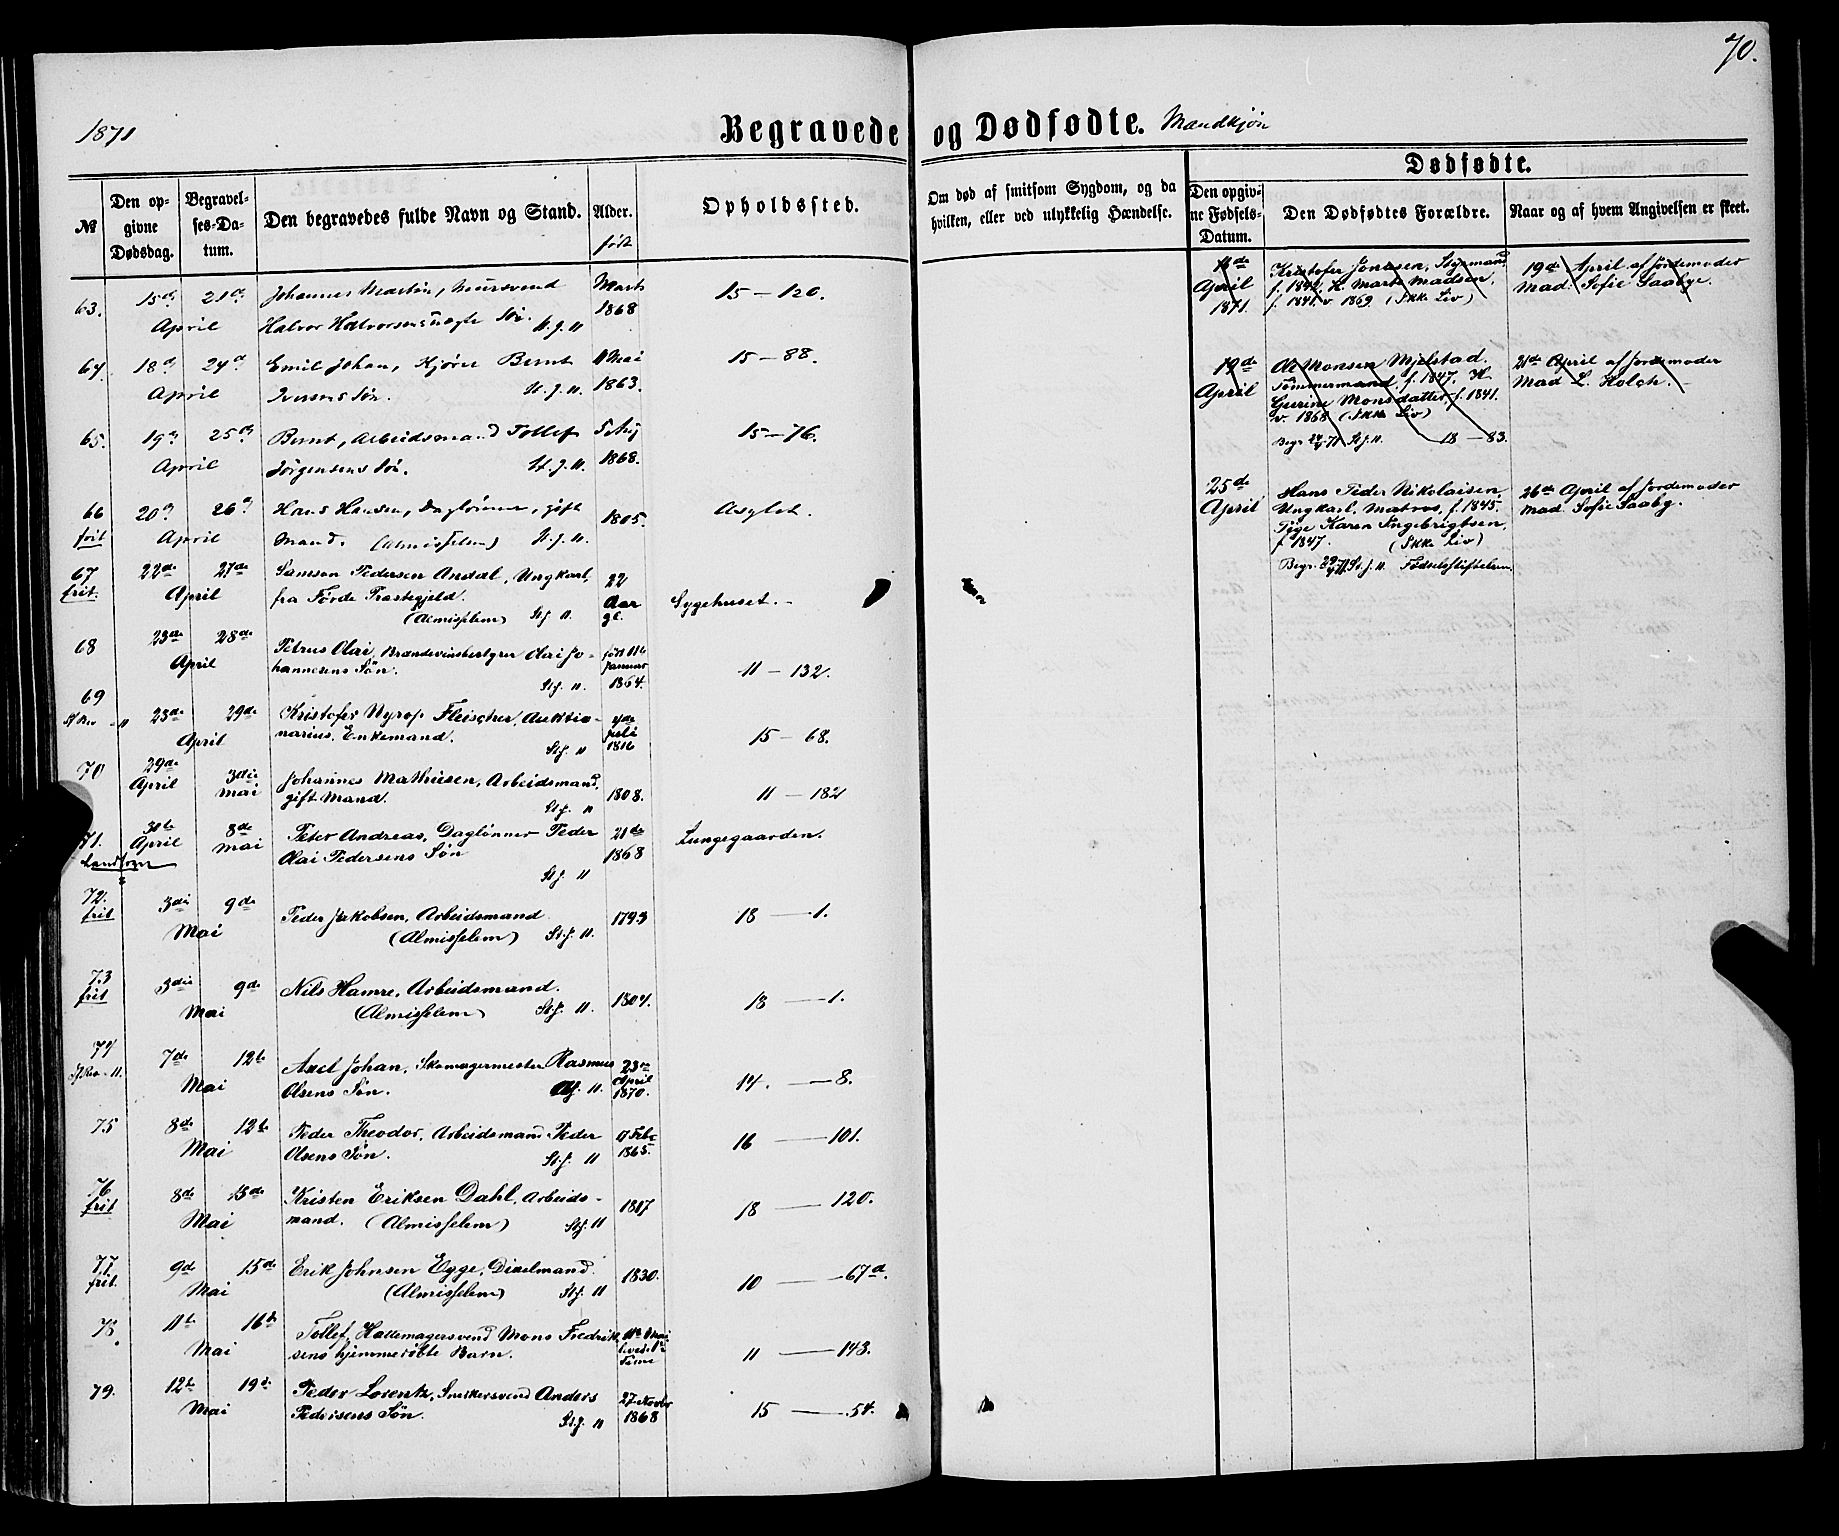 70.
1871
Begravede og Dødfødte. Mandkjøn
№
Den opgivne Dødsdag.
Begravelses-Datum.
Den begravedes fulde Navn og Stand.
Alder.
født
Opholdssted.
Om død af smitsom Sygdom, og da hvilken, eller ved ulykkelig Hændelse.
Dødfødte.
Den opgivne Fødsels-Datum.
Den Dødfødtes Forældre.
Naar og af hvem Angivelsen er skeet.
63. 15de 21de Johannes Martin, Mursvend Marts 15 – 120.
April Halvor Halvorsens Søn. St. J. 11 1868
64. 18de 24de Emil Johan, Kjører Bernt 11 Mai 15 – 88.
April Iversens Søn. St. J. 11. 1863.
65. 19de 25de Bernt, Arbeidsmand Tollef 15 – 76.
April Jörgensens Sön. St. J. 11. 1868.
66 20de 26de Hans Hansen, Daglønner, gift 1805. Asylet.
frit April Mand. (Almisselem) St. J. 11.
67 22de 27de Samson Pedersen Andal, Ungkarl, 22
frit. April fra Förde Præstegjeld. Aar Sygehuset.
(Almisselem) St J 11. gl.
68 23de 28de Petrus Olai, Brændevinsbestyrer Olai Jo- født 11te
April hannesens Søn. Januar 11 – 132.
St J. 11. 1864.
69
23de 29de Kristofer Nyrop Fleischer, Auktio- 4de
April narius, Enkemand. Juli 15 – 68.
St J. 11 1816
70 29de 3die Johannes Mathiesen, Arbeidsmand, 1808. 11 – 182
April Mai gift Mand. St J. 11
71. 30te 8de Peter Andreas, Daglönner Peder 21de Lungegaarden.
April Mai Olai Pedersens Søn 1868
St J. 11
72. 3die 9de Peder Jakobsen, Arbeidsmand 1793 18 – 1.
frit Mai (Almisselem) St. J. 11.
73 3die 9de Nils Hamre, Arbeidsmand. 1804. 18 – 1.
frit Mai (Almisselem) St. J. 11.
74 7de 12te Axel Johan, Skomagermester Rasmus 23de
Mai Olsens Søn. St. J. 11. April 1870. 14. – 8.
75 8de 12te Peder Theodor, Arbeidsmand Peder 17 Febr 16 – 101.
Mai Olsens Søn. St. J. 11 1865.
76 8de 13de Kristen Eriksen Dahl, Arbeids- 1817 18 – 120.
frit Mai mand. (Almisselem) St J 11
77 9d 15de Erik Johnsen Egge, Dixelmand. 1830. 10 – 67d.
frit. Mai (Almisselem) St J. 11
78. 11te 16de Tollef, Hattemagersvend Mons Fredrik- 11te Mai 11 – 143.
Mai sens hjemmedöbte Barn. Time
79. 12te 19de Peder Lorentz, Snekkersvend Anders 27 Novbr 15 – 54.
Mai Pedersens Søn. St. J. 11 1868
April 1871. Kristofer Jonesen, Styrmand, 19de April af Jordemoder
H. Marte Madsen, Mad. Sofie Saabye.
f. 1841. v 1869 (Ikke Liv)
19de April Monsen Mjelstad. 21de April af Jordemoder
Tömmermand, f. 1847. H. Mad L. Holck.
Gurine Monsdatter, f. 1841.
v. 1868 (Ikke Liv)
Begr. St J. 11. 18 – 83.
25de April Hans Peder Nikolaisen, 26de April af Jordemoder
Ungkarl, Matros, f. 1845. Mad Sofie Saaby.
Pige Karen Ingebrigtsen,
f 1847. (Ikke Liv)
Begr. 29/4 71 St. J. 11. Fødselsstiftelsen